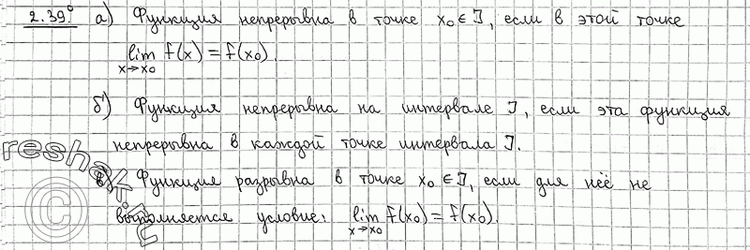 2.39° а) Функция непрерывна в точке x₀ ∈ J, если в этой точке
lim f(x) = f(x₀).
x→x₀
б) Функция непрерывна на интервале J, если эта функция
непрерывна в каждой точке интервала J.
в) Функция разрывна в точке x₀ ∈ J, если для неё не
выполняется условие: lim f(x₀) = f(x₀).
x→x₀
reshak.ru
©